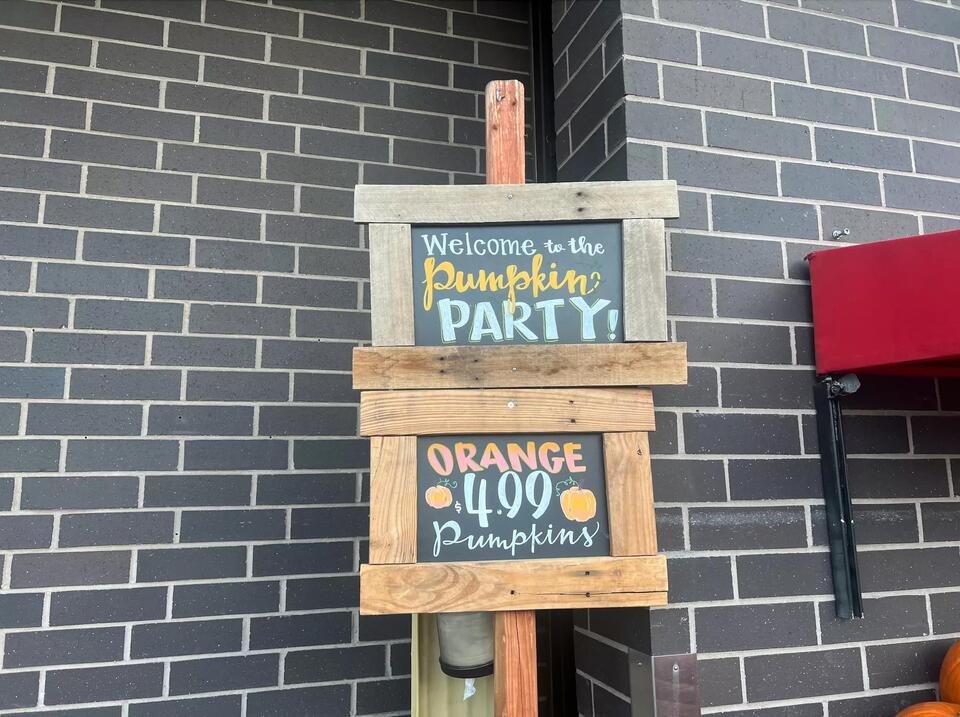 Welcome to the
Pumpkin
PARTY!
ORANGE
$4.99
Pumpkins